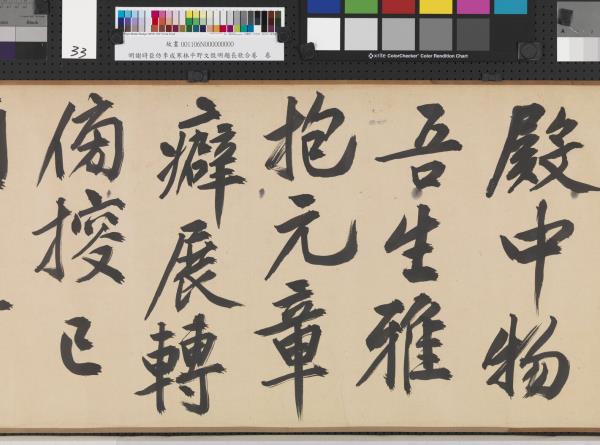 33
故畫 001106N000000000
明謝時臣仿李成寒林平野文徵明長歌合卷 卷
x-rite ColorChecker Color Rendition Chart
殿中物
吾生雅
抱元章
癖展轉
備搜已